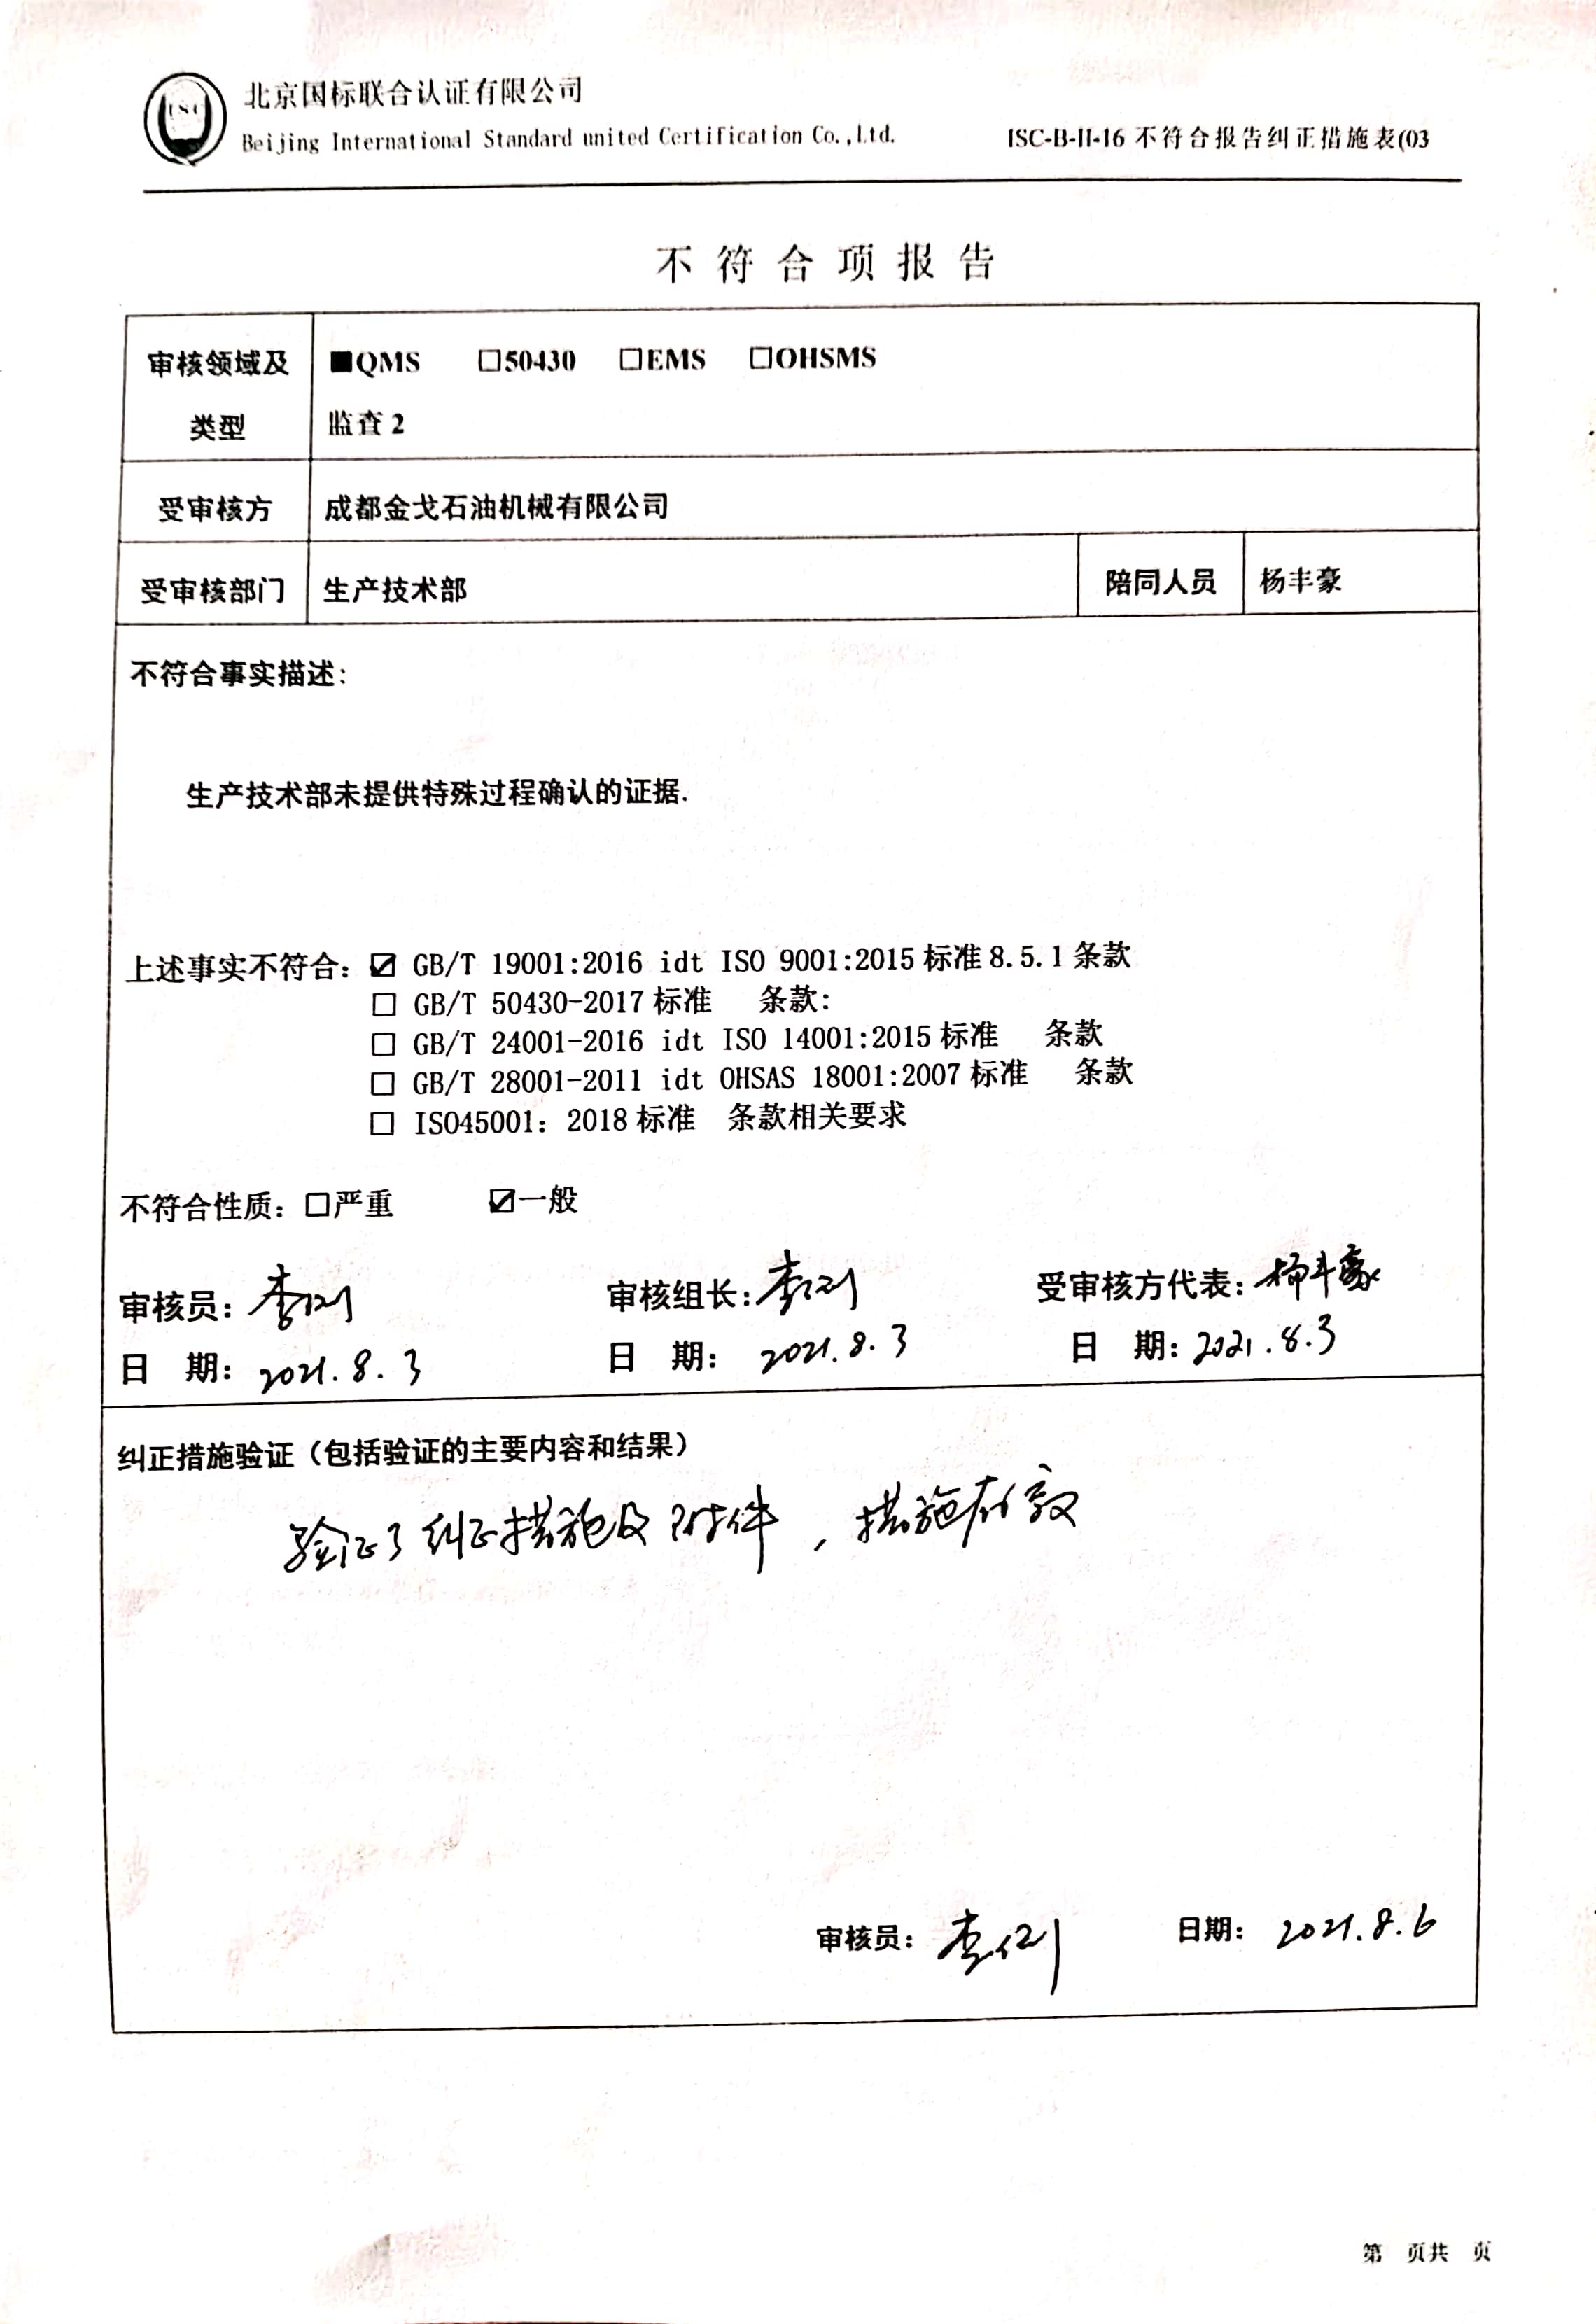 ISC
北京国标联合认证有限公司
Beijing International Standard united Certification Co.,Ltd.
ISC-B-II-16 不符合报告纠正措施表(03
不符合项报告
审核领域及类型
■QMS □50430 □EMS □OHSMS
监查2
受审核方 成都金戈石油机械有限公司
受审核部门 生产技术部 陪同人员 杨丰豪
不符合事实描述:
生产技术部未提供特殊过程确认的证据.
上述事实不符合: ☑ GB/T 19001:2016 idt ISO 9001:2015标准8.5.1条款
□ GB/T 50430-2017标准 条款:
□ GB/T 24001-2016 idt ISO 14001:2015标准 条款
□ GB/T 28001-2011 idt OHSAS 18001:2007标准 条款
□ ISO45001: 2018标准 条款相关要求
不符合性质: □严重 ☑一般
审核员: 审核组长: 受审核方代表: 杨丰豪
日 期: 2021.8.3 日 期: 2021.8.3 日 期: 2021.8.3
纠正措施验证(包括验证的主要内容和结果)
验证了纠正措施及附件,措施有效
审核员: 日期: 2021.8.6
第 页共 页